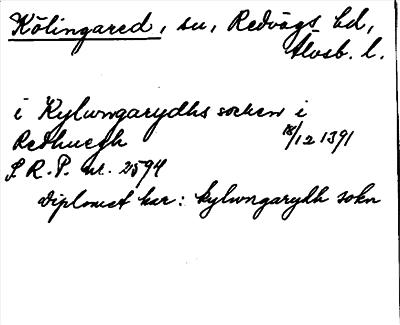 Kölingared, sn, Redvägs hd,
Älvsb. l.
i Kylwngarydhs socken i
Redhuegh 18/12 1391
S. R. P. nr. 2594
diplomet har: kylwngarydh sokn